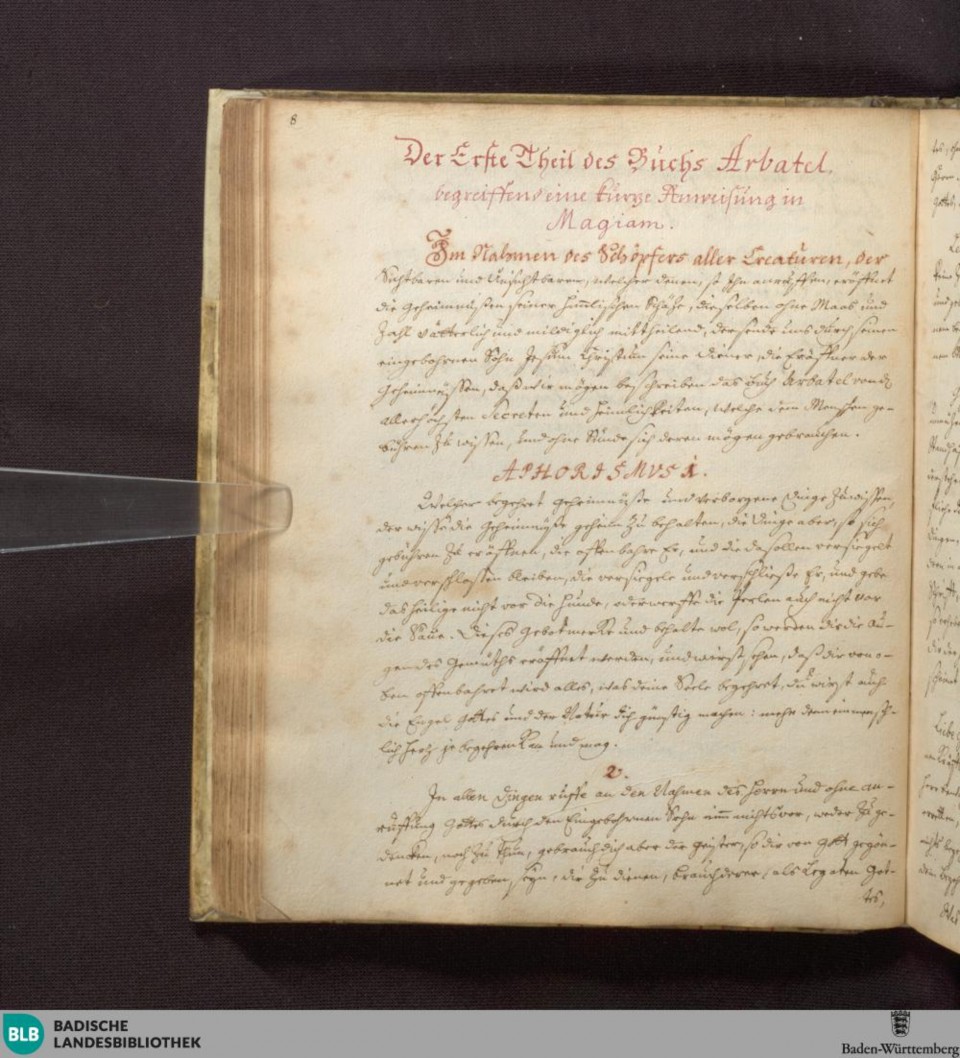 8
Der Erste Theil des Buchs Arbatel,
begreiffend eine kurze Anweisung in
Magiam.
Im Nahmen des Schöpfers aller Creaturen, der
Sichtbaren und Unsichtbaren, welcher denen, so Ihn anruffen, eröffnet
die Geheimnußen seiner himlischen Schäze, dieselben ohne Maas und
Zahl vätterlich und mildiglich mittheilend, der sende uns durch seinen
eingebohrnen Sohn Jesum Christum seine diener, die Eröffner der
Geheimnußen, daß wir mögen beschreiben das Buch Arbatel von den
allerhöchsten Secreten und heimlichkeiten, welche dem Menschen ge-
bühren zu wissen, und ohne Sünde sich deren mögen gebrauchen.
APHORISMUS 1.
Welcher begehret geheimnüße und verborgene dinge zuwissen,
der wiße die Geheimniße geheim zu behalten, die dinge aber, so sich
gebühren zu eröffnen, die offenbahre Er, und die da sollen versiegelt
und verschlossen bleiben, die versiegele und verschließe Er, und gebe
das heilige nicht vor die Hunde, oder werffe die Perlen auch nicht vor
die Säue. Dieses Gebot mercke und behalte wol, so werden dir die Au-
gen des Gemüths eröffnet werden, und wirst sehen, daß dir von o-
ben offenbahret wird alles, was deine Seele begehret, du wirst auch
die Engel Gottes und der Natur dich günstig machen: mehr denn ein mensch-
lich hertz je begehren kan und mag.
2.
In allen dingen ruffe an den Nahmen des Herrn und ohne an-
ruffung Gottes durch den Eingebohrnen Sohn nimm nichts vor, weder zu ge-
dencken, noch zu thun, gebrauch dich aber der geister, so dir von Gott gegön-
net und gegeben seyn, dir zu dienen, brauch derer, als Legaten Got-
tes,
BLB
BADISCHE
LANDESBIBLIOTHEK
Baden-Württemberg